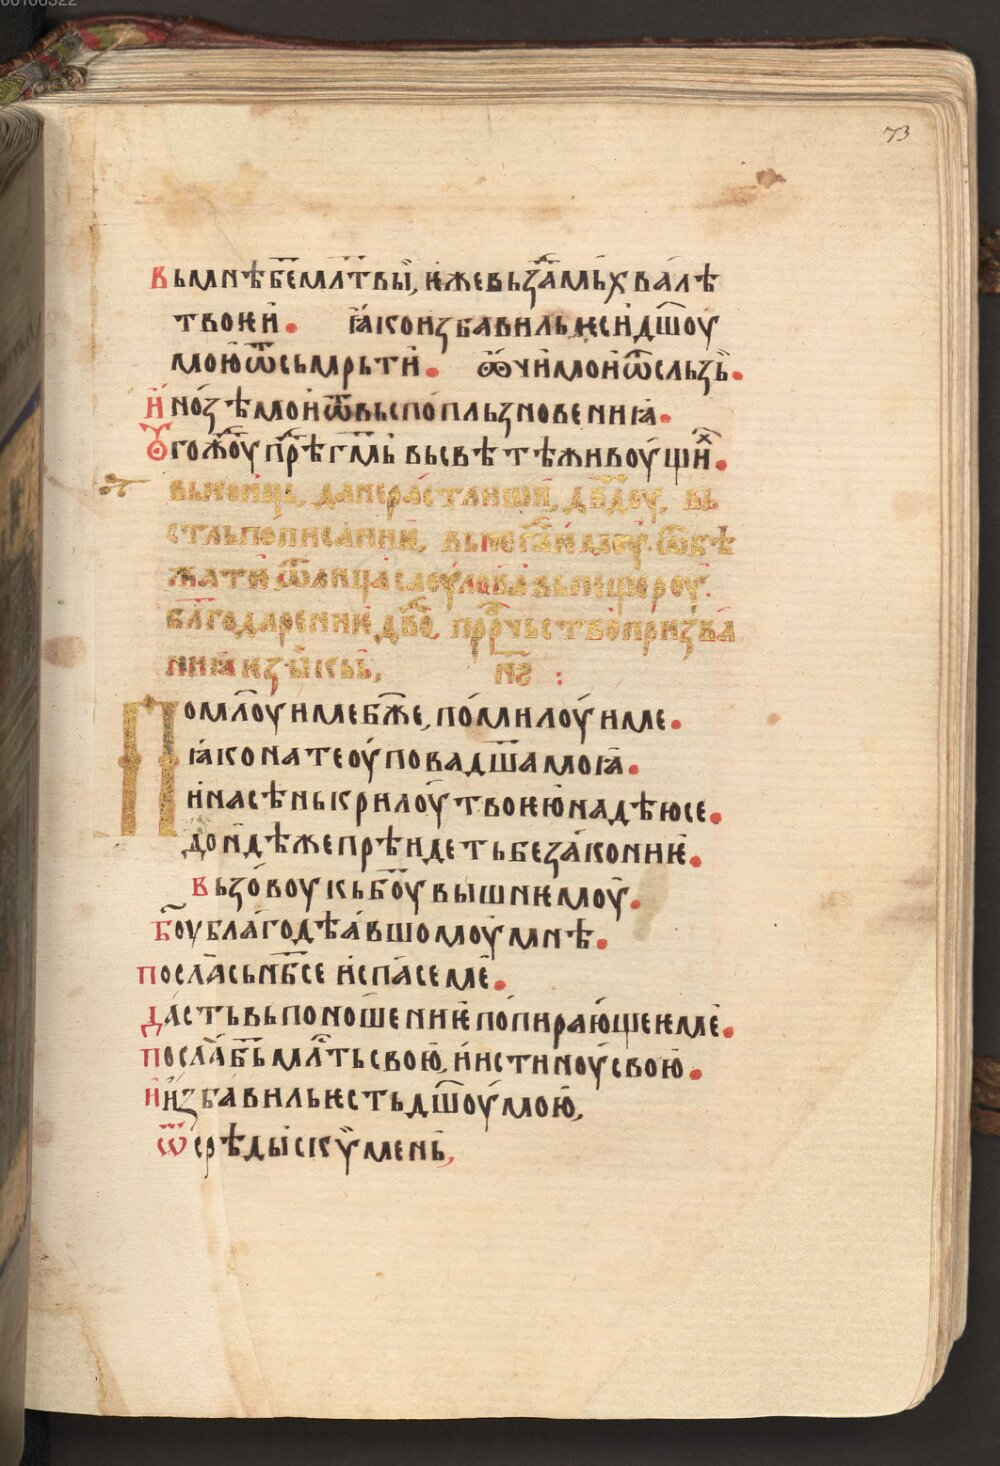 00108322
73
вьмнѣ б҃е мл҃твы, ꙗже вьзда́мь хвалѣ
твоѥи. ꙗко избавиль ѥси дш҃оу
мою ѿ сьмрьти. ѻчи мои ѿ сльзь.
и нозѣ мои ѿ вьспопльзновениꙗ.
Оугождоу прѣд гм҃ь вь свѣтѣ живоущих.
вь конць, да не растлиши, дв҃доу, вь
стльпописаниѥ, вьнѥгда ѥмоу ѿбѣ
жати ѿ лица саоулова вь пещероу.
благодарениѥ дв҃до, прр҃чьство призва
ниꙗ ѥзыкь, н҃ѕ :
Помл҃оуи ме бж҃е, помилоуи ме.
ꙗко на те оупова дш҃а моꙗ.
и на сѣнь крилоу твоѥю надѣю се.
доидѣже прѣидеть безакониѥ.
вьзовоу кь бо҃у вышнѥмоу.
бо҃у благодѣавшомоу мнѣ.
посла сь нб҃се и спасе ме.
дасть вь поношениѥ попирающеѥ ме.
посла бь҃ мл҃ть свою, и истиноу свою.
и избавиль ѥсть дш҃оу мою,
ѿ срѣды скѵмень,